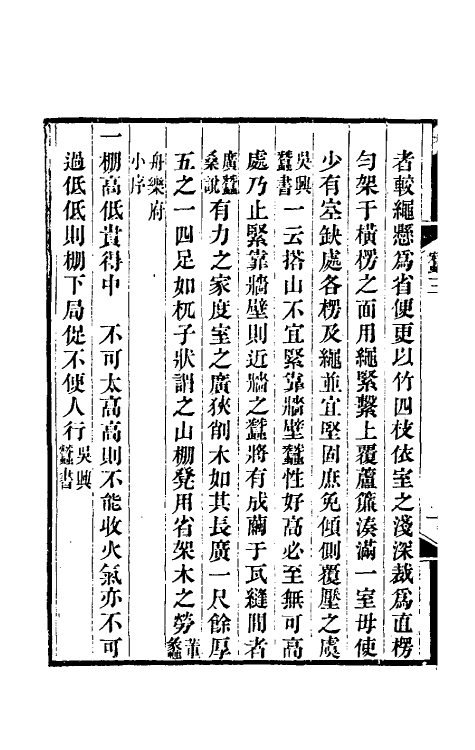 者較繩懸爲省便更以竹四枝依室之淺深裁爲直楞
勻架于橫楞之面用繩緊繫上覆蘆簾湊滿一室毋使
少有空缺處各楞及繩並宜堅固庶免傾側覆壓之虞
吳興蠶書一云搭山不宜緊靠牆壁蠶性好高必至無可高
處乃止緊靠牆壁則近牆之蠶將有成繭于瓦縫間者
廣蠶桑說有力之家度室之廣狹削木如其長廣一尺餘厚
五之一四足如杌子狀謂之山棚凳用省架木之勞董蠡
舟樂府小序
一棚高低貴得中 不可太高高則不能收火氣亦不可
過低低則棚下局促不便人行吳興蠶書